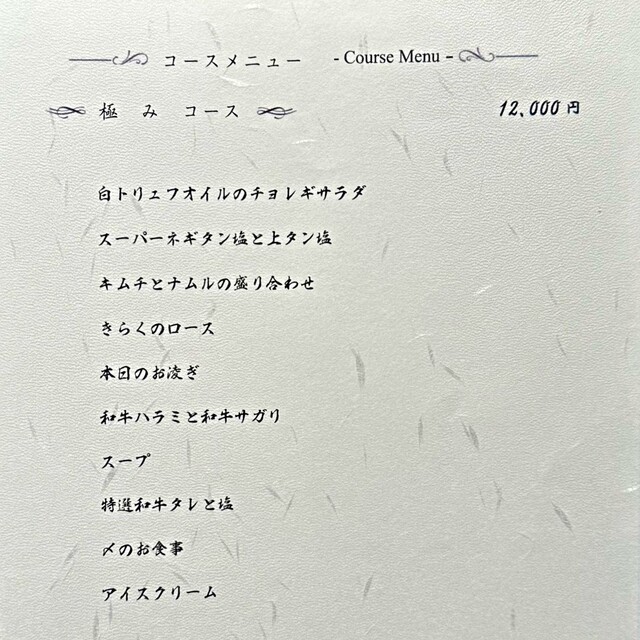 コースメニュー - Course Menu -
極み コース 12,000円
白トリュフオイルのチョレギサラダ
スーパーネギタン塩と上タン塩
キムチとナムルの盛り合わせ
きらくのロース
本日のお凌ぎ
和牛ハラミと和牛サガリ
スープ
特選和牛タレと塩
〆のお食事
アイスクリーム